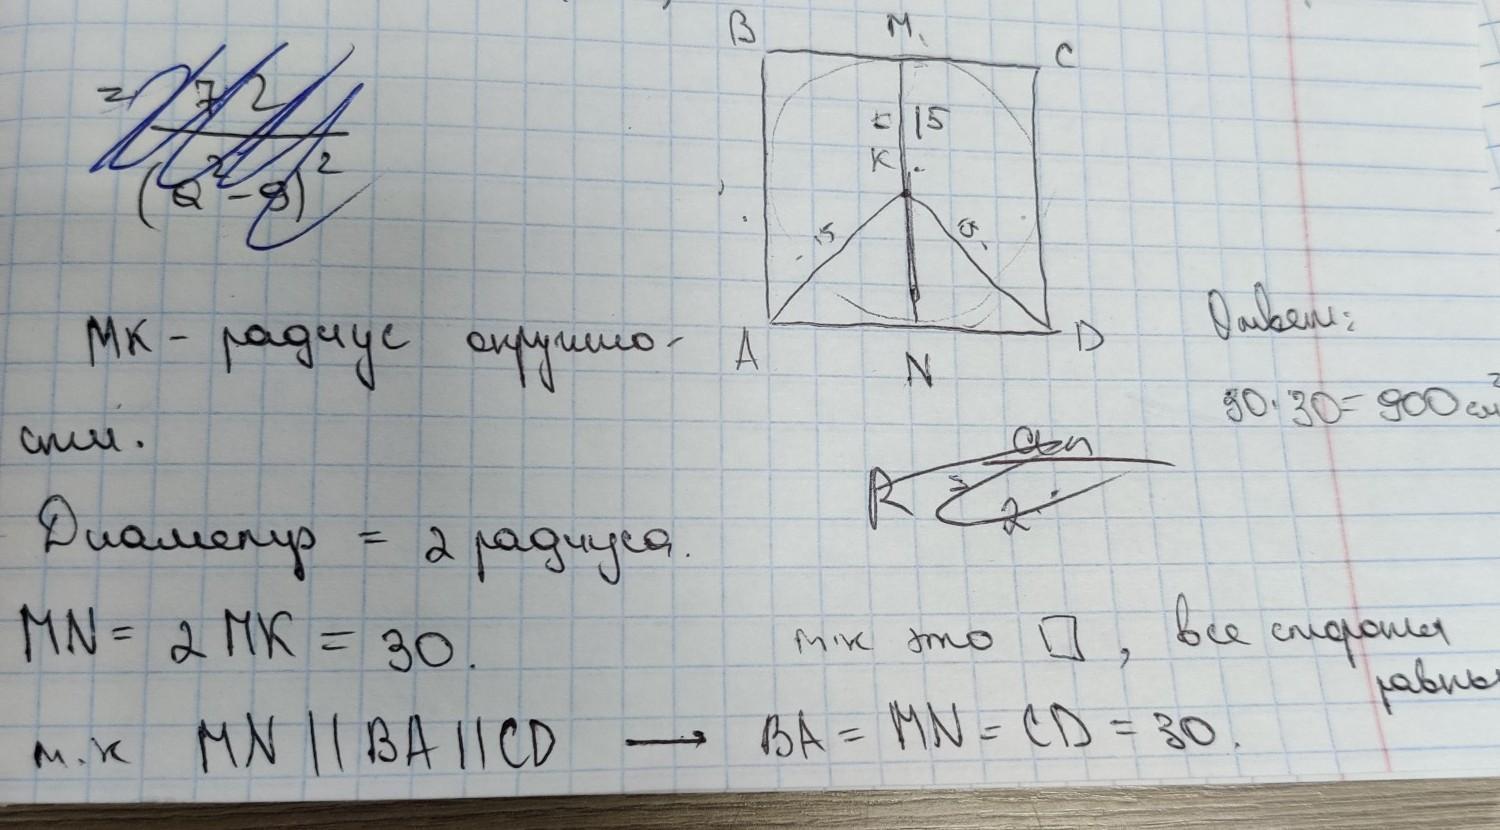 = 72
(a² - 9)²
B M C
15
K
A N D
МК - радиус окружно-
сти.
Диаметр = 2 радиуса.
MN = 2 MK = 30.
т.к MN || BA || CD → BA = MN = CD = 30.
т.к это □, все стороны
равны
Ответ:
30·30 = 900 см²
R =
2